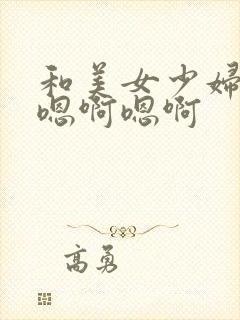 和美女少婦
嗯啊嗯啊
高勇